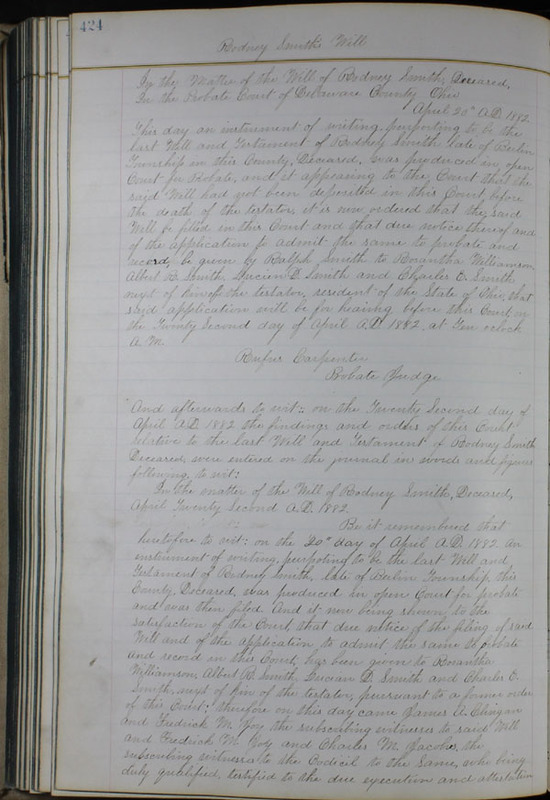 424
Rodney Smith's Will
In the Matter of the Will of Rodney Smith, Deceased,
In the Probate Court of Delaware County Ohio
April 20th A.D. 1882.
This day an instrument of writing purporting to be the
last Will and Testament of Rodney Smith late of Berlin
Township in this County, Deceased, was produced in open
Court for Probate, and it appearing to the Court that the
said Will had not been deposited in this Court before
the death of the testator, it is now ordered that the said
Will be filed in this Court and that due notice thereof and
of the application to admit the same to probate and
record, be given by Ralph Smith to Rosantha Williamson,
Albert B. Smith, Lucian D. Smith and Charles E. Smith
next of kin of the testator, resident of the State of Ohio, that
said application will be for hearing before this Court on
the Twenty Second day of April A.D. 1882, at Ten o'clock
A. M.
Rufus Carpenter
Probate Judge
And afterwards to wit:- on the Twenty Second day of
April A.D. 1882 the findings and orders of this Court
relative to the last Will and Testament of Rodney Smith
Deceased, were entered on the journal in words and figures
following, to wit:
In the matter of the Will of Rodney Smith, Deceased,
April Twenty Second A.D. 1882.
Be it remembered that
heretofore to wit: on the 20th day of April A.D. 1882 an
instrument of writing purpoting to be the last Will and
Testament of Rodney Smith, late of Berlin Township, this
County, Deceased, was produced in open Court for probate
and was then filed. And it now being shown to the
satisfaction of the Court that due notice of the filing of said
Will and of the application to admit the same to probate
and record in this Court, has been given to Rosantha
Williamson, Albert B. Smith, Lucian D. Smith and Charles E.
Smith, next of kin of the testator, pursuant to a former order
of this Court; therefore on this day came James A.
and Fredrick M. Joy the subscribing witnesses to said Will
and Fredrick M. Joy and Charles M. Jacobs, the
subscribing witnesses to the Codicil to the Same, who being
duly qualified, testified to the due execution and attestation